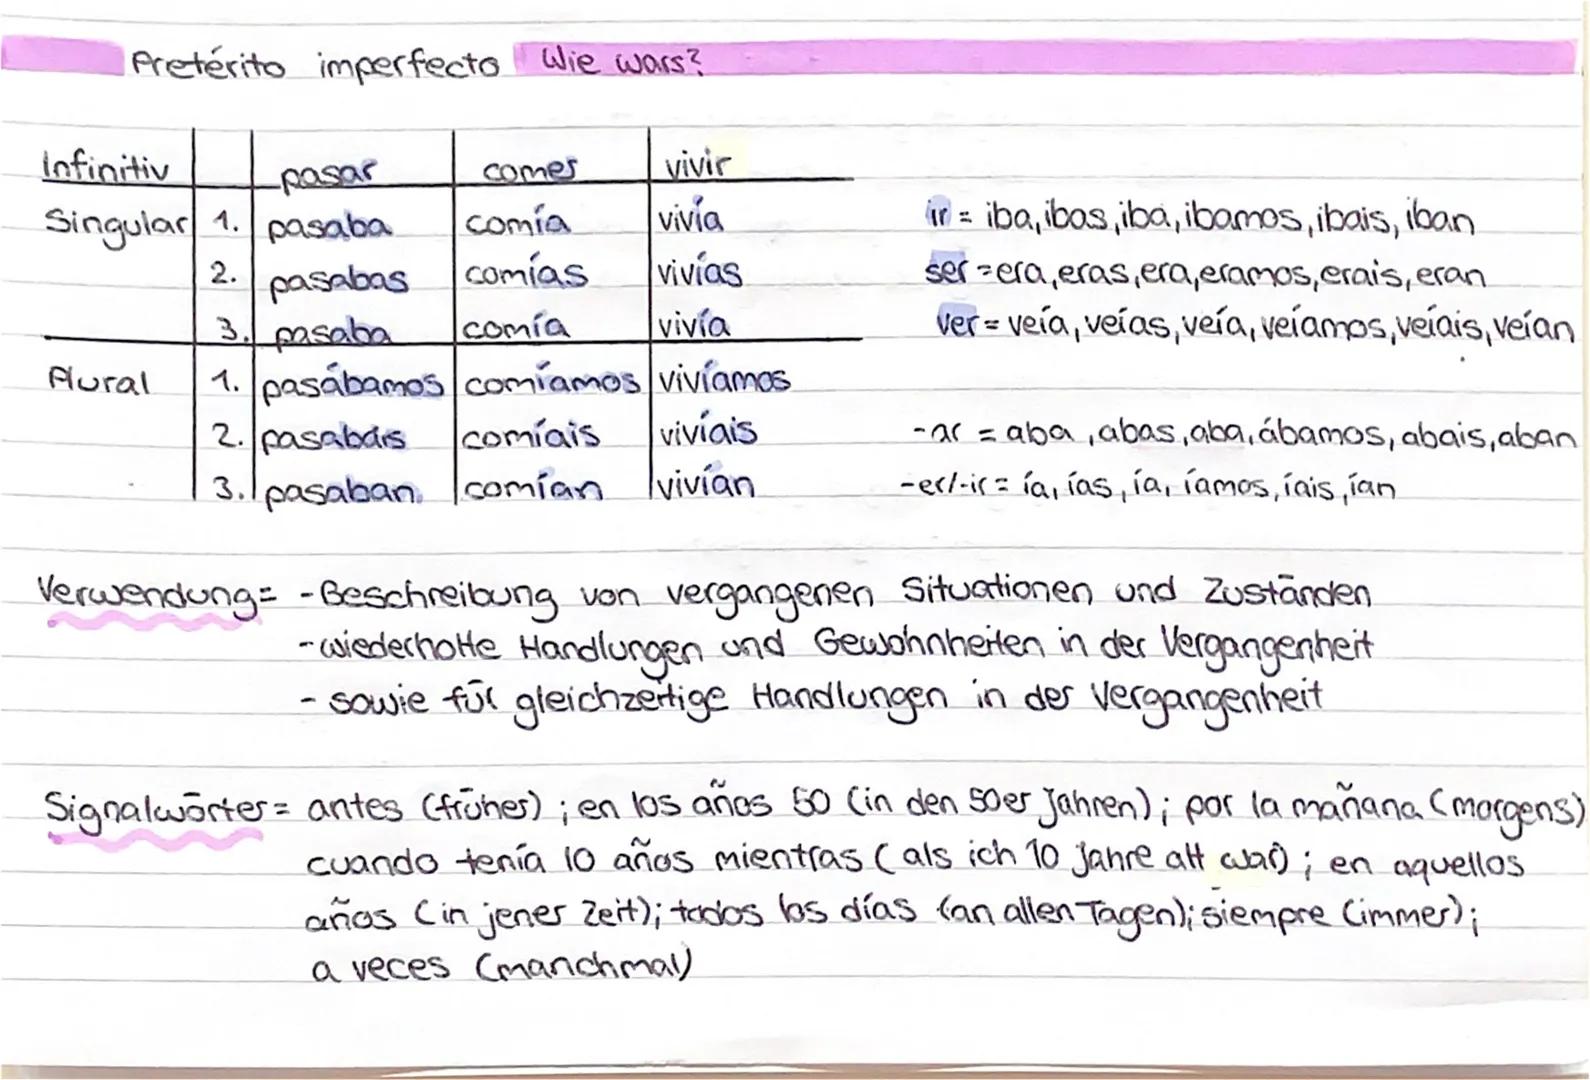 Pretérito imperfecto Wie wars?
Infinitiv pasar comer vivir
Singular 1. pasaba comía vivía
2. pasabas comías vivías
3. pasaba comía vivía
Plural 1. pasábamos comíamos vivíamos
2. pasabais comíais vivíais
3. pasaban comían vivían
ir = iba, ibas, iba, ibamos, ibais, iban
ser = era, eras, era, eramos, erais, eran
ver = veía, veías, veía, veíamos, veíais, veían
-ar = aba, abas, aba, ábamos, abais, aban
-er/-ir = ía, ías, ía, íamos, íais, ían
Verwendung = - Beschreibung von vergangenen Situationen und Zuständen
- wiederholte Handlungen und Gewohnheiten in der Vergangenheit
- sowie für gleichzeitige Handlungen in der Vergangenheit
Signalwörter = antes (früher) ; en los años 50 (in den 50er Jahren) ; por la mañana (morgens)
cuando tenía 10 años mientras (als ich 10 Jahre alt war) ; en aquellos
años (in jener Zeit); todos los días (an allen Tagen); siempre (immer);
a veces (manchmal)